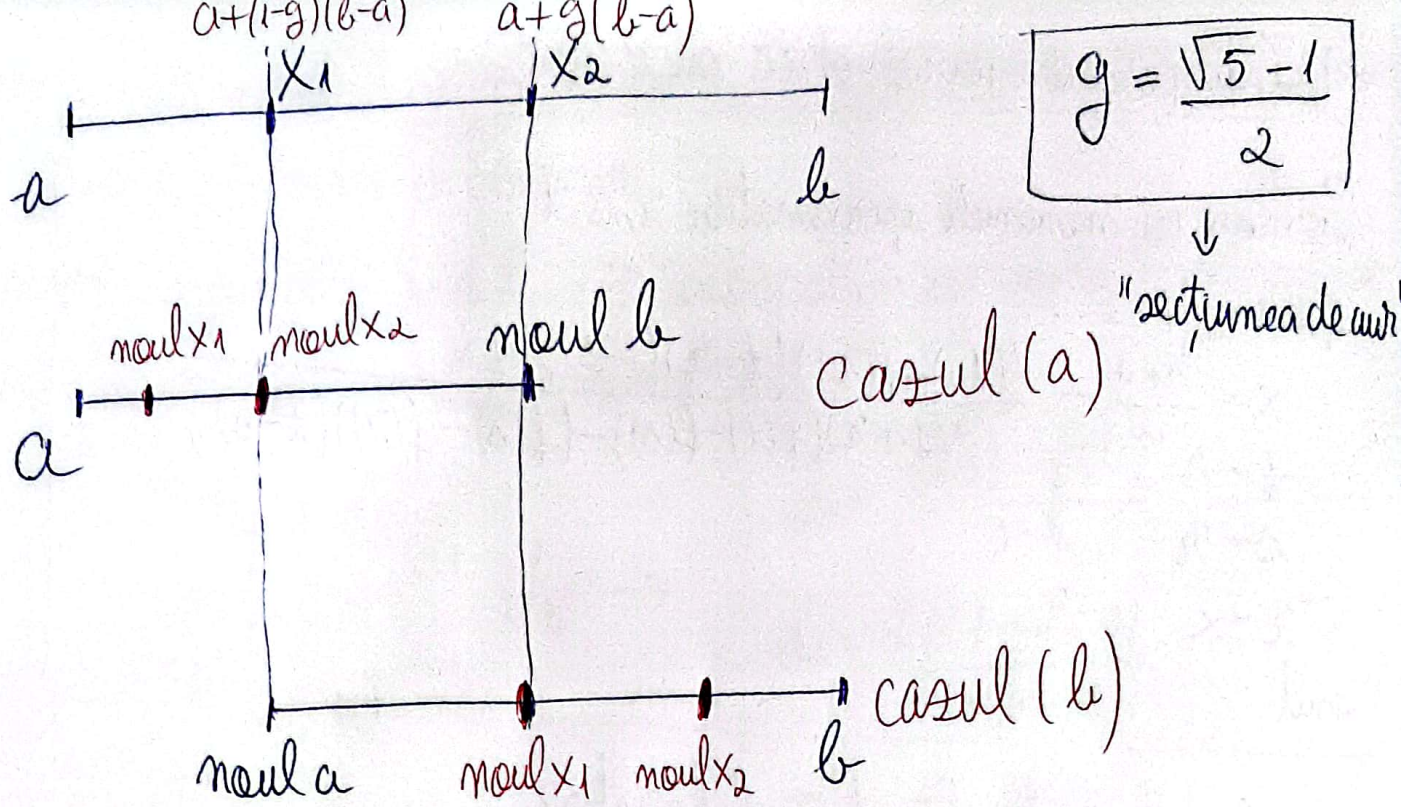 a+(1-g)(b-a) a+g(b-a)
x1 x2
a b
g = √5-1
2
"secțiunea de aur"
noul x1 noul x2 noul b
cazul (a)
a
cazul (b)
noul a noul x1 noul x2 b